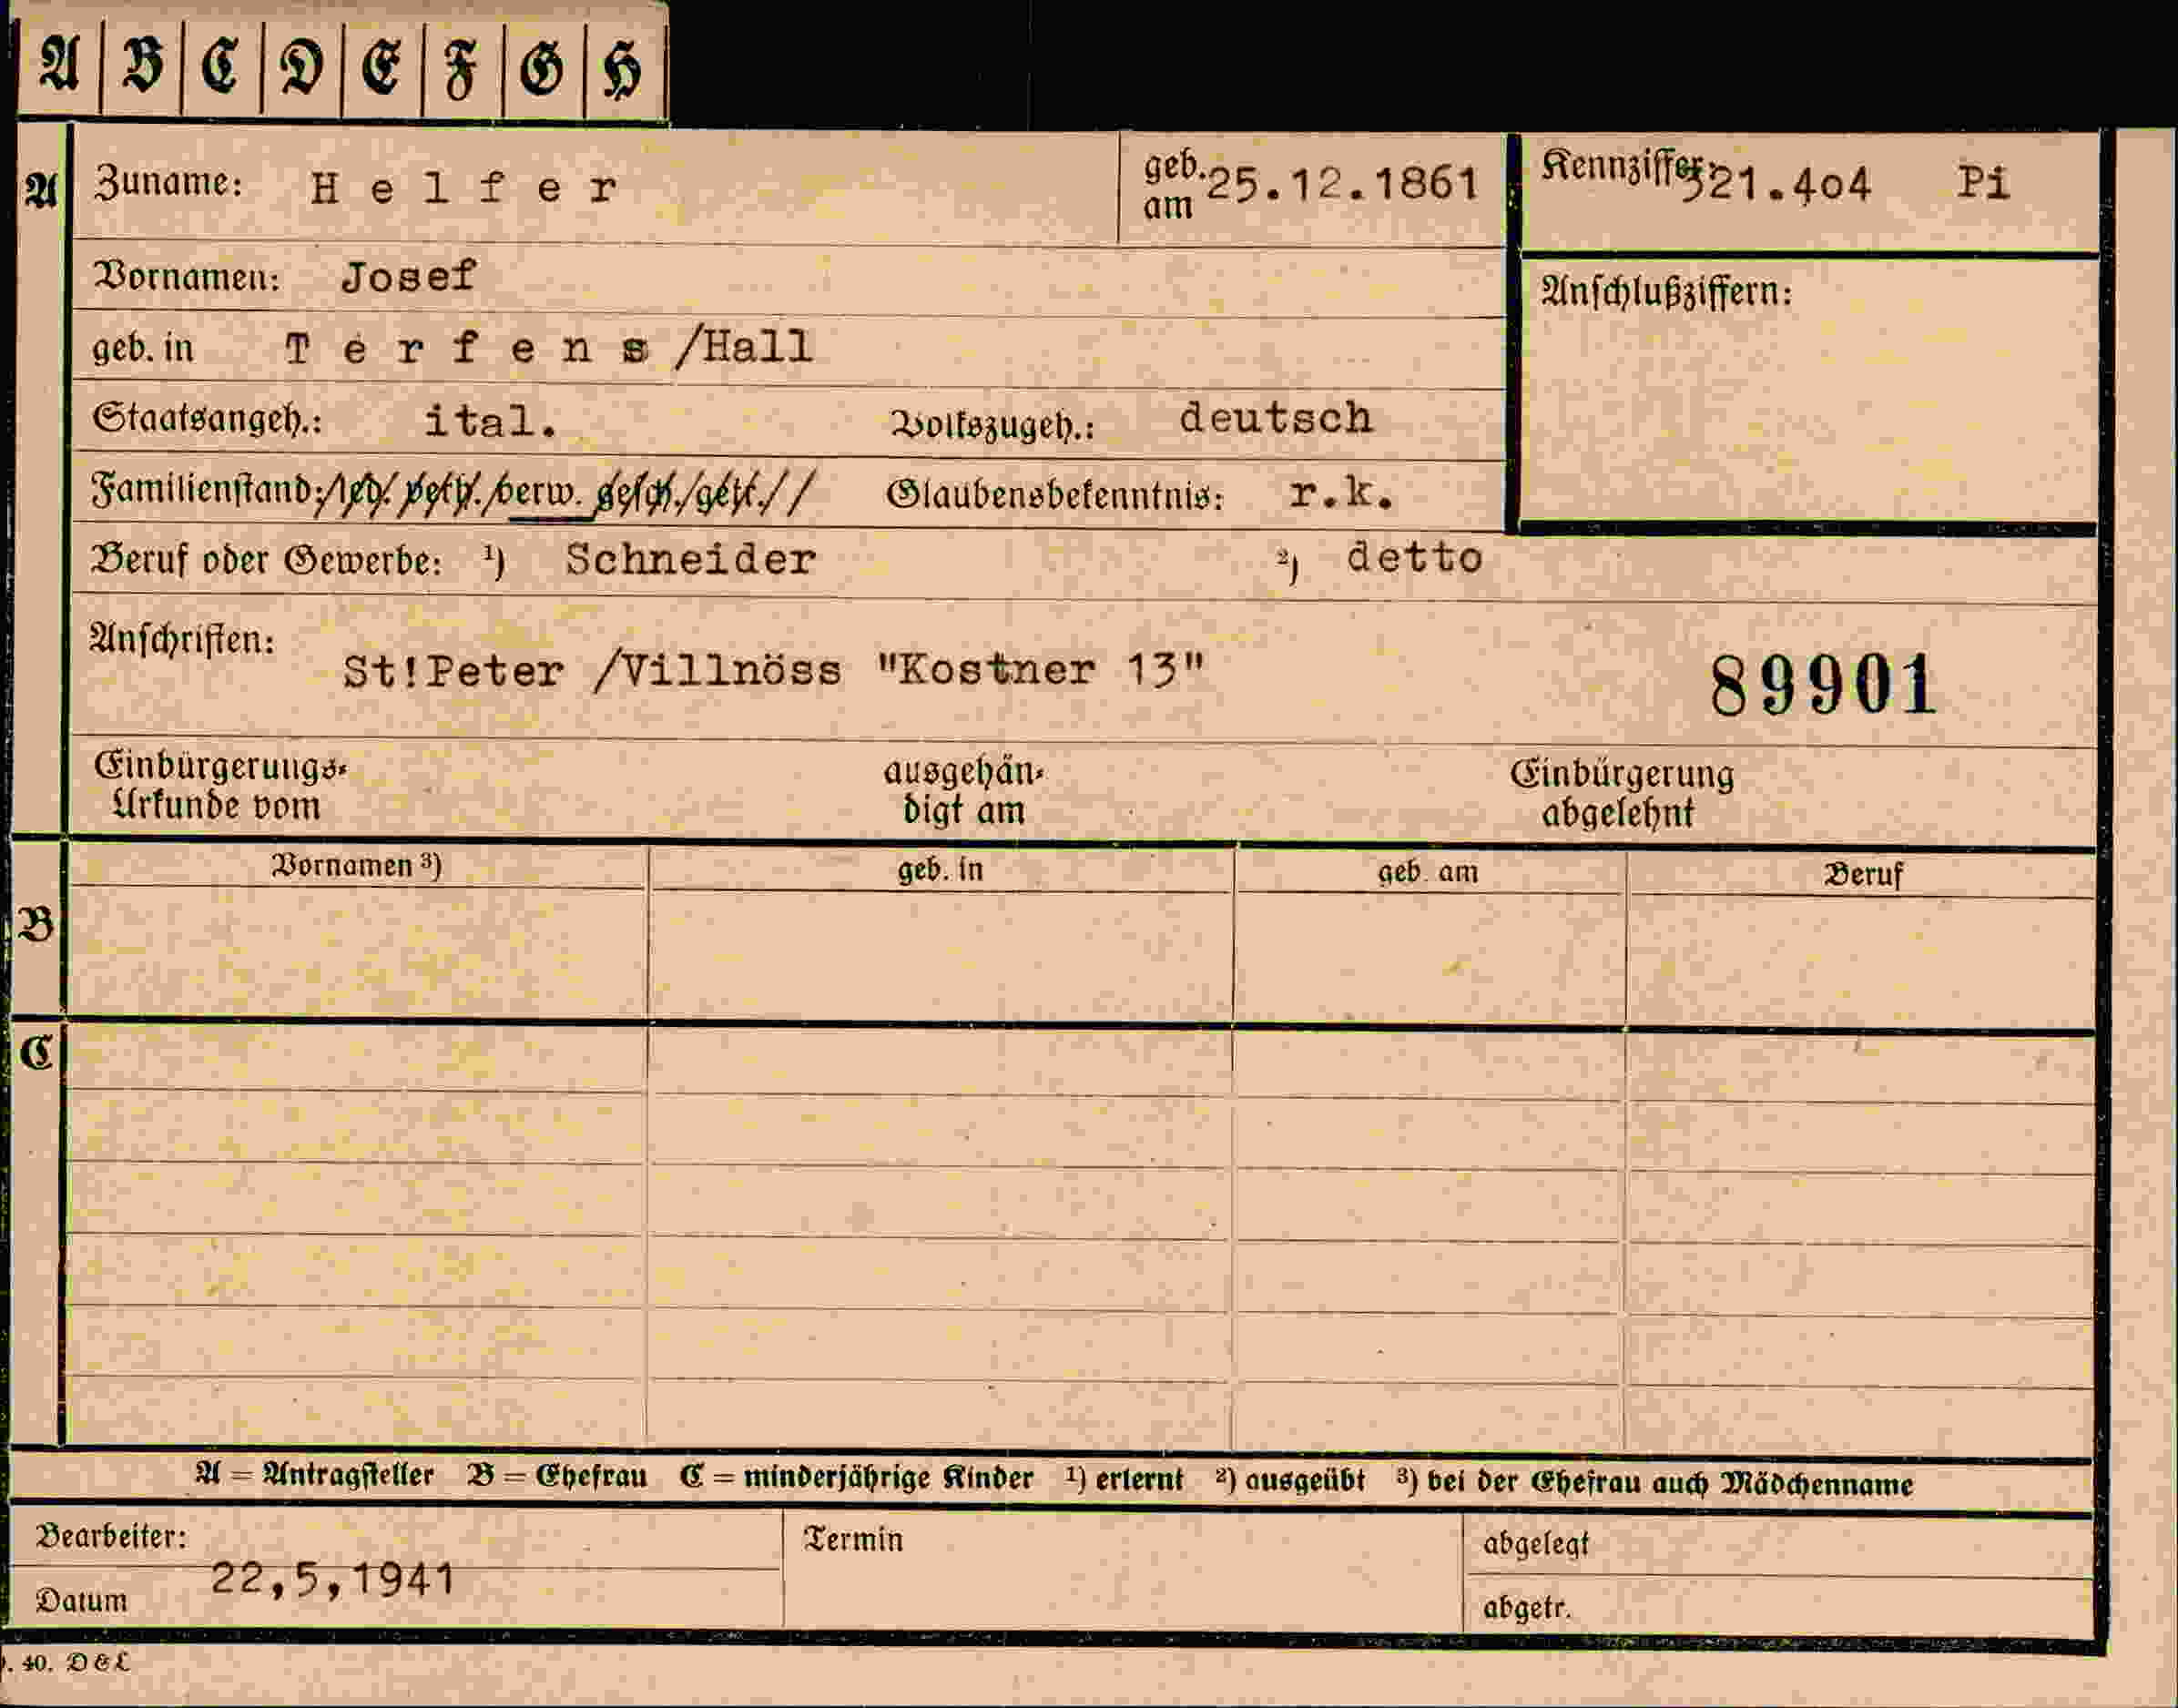 A B C D E F G H
A Zuname: Helfer geb. am 25.12.1861 Kennziffer: 321.404 Pi
Vornamen: Josef
Anschlußziffern:
geb. in Terfens/Hall
Staatsangeh.: ital. Volkszugeh.: deutsch
Familienstand: led. verh. verw. gesch. getr. Glaubensbekenntnis: r.k.
Beruf oder Gewerbe: ¹) Schneider ²) detto
Anschriften:
St!Peter /Villnöss "Kostner 13" 89901
Einbürgerungs- ausgehän- Einbürgerung
Urkunde vom digt am abgelehnt
Vornamen ³) geb. in geb. am Beruf
B
C
A = Antragsteller B = Ehefrau C = minderjährige Kinder ¹) erlernt ²) ausgeübt ³) bei der Ehefrau auch Mädchenname
Bearbeiter: Termin abgelegt
22,5,1941
Datum abgetr.
. 40. D & L